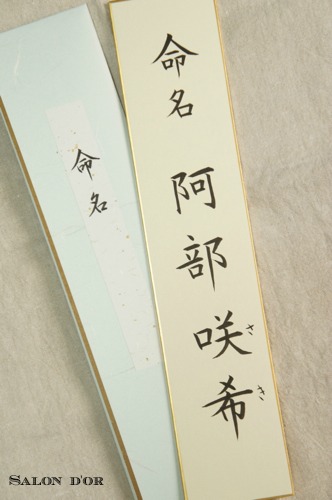 命名
阿部咲希
さき
命名
SALON D'OR